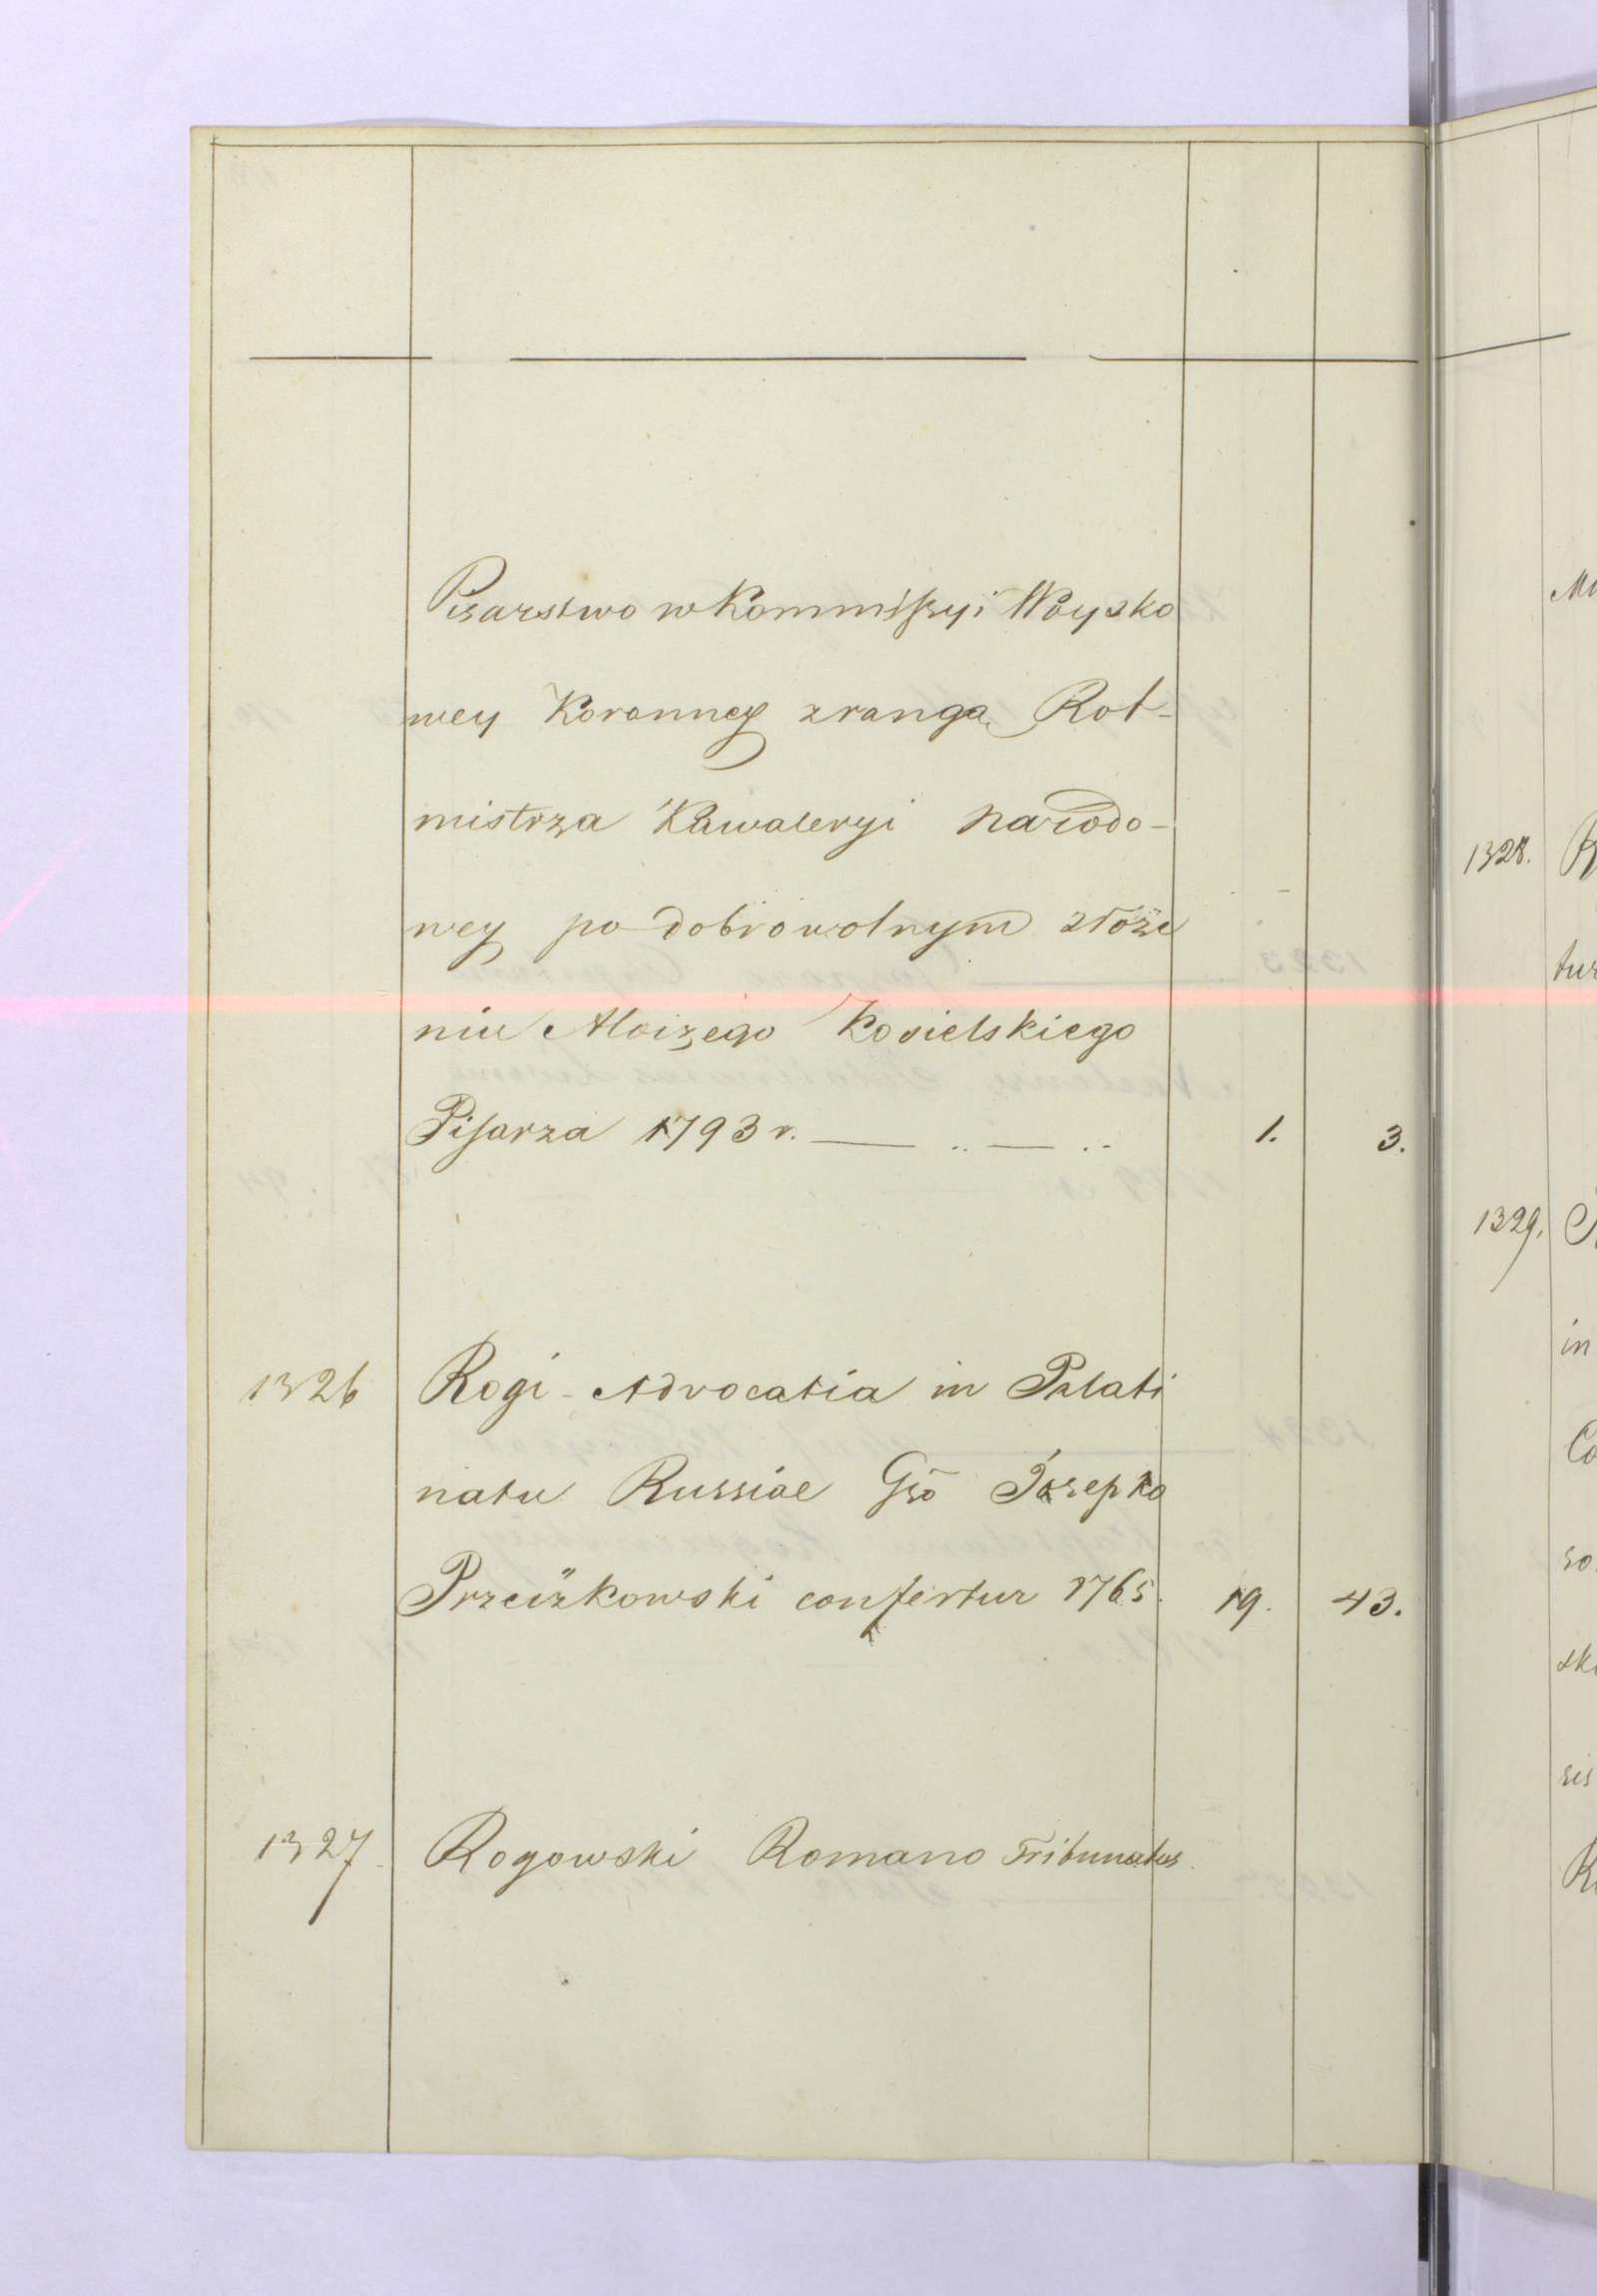 Pisarstwo w Kommissyi Woysko
wey Koronney z rangą Rot-
mistrza Kawaleryi narodo-
wey po dobrowolnym złoże
niu Aloizego Kosielskiego
Pisarza 1793 r. — .. — .. 1. 3.
1326 Rogi - Advocatia in Palati
natu Russiae Gso Josepho
Przciszkowski confertur 1765. 19. 43.
1327. Rogowski Romano Tribunatus
1328.
tur
1329.
in